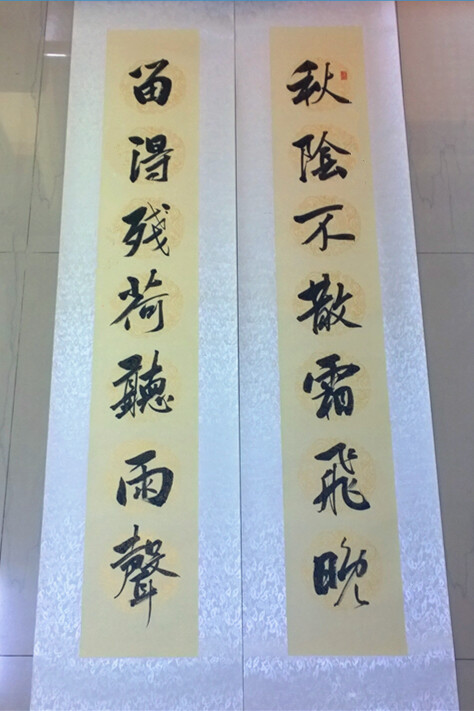 秋陰不散霜飛晚
留得残荷聽雨聲